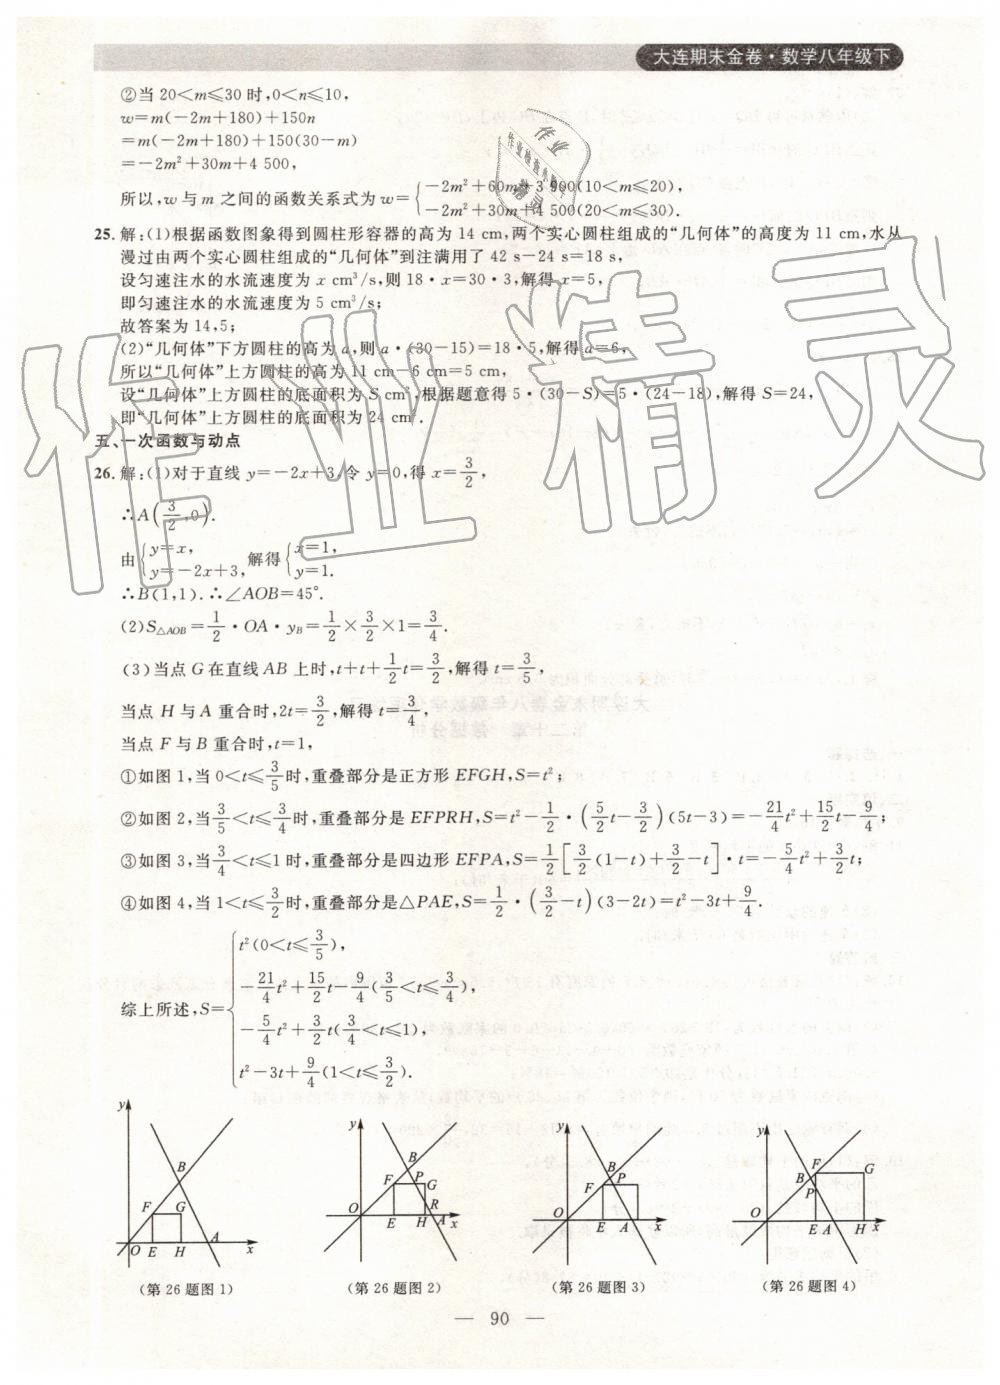 大连期末金卷·数学八年级下
②当 20<m≤30 时,0<n≤10,
w=m(-2m+180)+150n
=m(-2m+180)+150(30-m)
=-2m²+30m+4 500,
所以,w 与 m 之间的函数关系式为 w={-2m²+60m+3 900(10<m≤20),
-2m²+30m+4 500(20<m≤30).
25. 解:(1)根据函数图象得到圆柱形容器的高为 14 cm,两个实心圆柱组成的“几何体”的高度为 11 cm,水从
漫过由两个实心圆柱组成的“几何体”到注满用了 42 s-24 s=18 s,
设匀速注水的水流速度为 x cm³/s,则 18·x=30·3,解得 x=5,
即匀速注水的水流速度为 5 cm³/s;
故答案为 14,5;
(2)“几何体”下方圆柱的高为 a,则 a·(30-15)=18·5,解得 a=6,
所以“几何体”上方圆柱的高为 11 cm-6 cm=5 cm,
设“几何体”上方圆柱的底面积为 S cm²,根据题意得 5·(30-S)=5·(24-18),解得 S=24,
即“几何体”上方圆柱的底面积为 24 cm².
五、一次函数与动点
26. 解:(1)对于直线 y=-2x+3,令 y=0,得 x=3/2,
∴A(3/2,0).
由{y=x, y=-2x+3, 解得{x=1, y=1.
∴B(1,1).∴∠AOB=45°.
(2)S△AOB=1/2·OA·yB=1/2×3/2×1=3/4.
(3)当点 G 在直线 AB 上时,t+t+1/2t=3/2,解得 t=3/5,
当点 H 与 A 重合时,2t=3/2,解得 t=3/4,
当点 F 与 B 重合时,t=1,
①如图 1,当 0<t≤3/5时,重叠部分是正方形 EFGH,S=t²;
②如图 2,当3/5<t≤3/4时,重叠部分是 EFPRH,S=t²-1/2·(5/2t-3/2)(5t-3)=-21/4t²+15/2t-9/4;
③如图 3,当3/4<t≤1时,重叠部分是四边形 EFPA,S=1/2[3/2(1-t)+3/2-t]·t=-5/4t²+3/2t;
④如图 4,当 1<t≤3/2时,重叠部分是△PAE,S=1/2·(3/2-t)(3-2t)=t²-3t+9/4.
综上所述,S={t²(0<t≤3/5),
-21/4t²+15/2t-9/4(3/5<t≤3/4),
-5/4t²+3/2t(3/4<t≤1),
t²-3t+9/4(1<t≤3/2).
y B F G O E H A x
y B F P G R O E H A x
y B F P O E A x
y F G B P O E A H x
(第 26 题图 1)
(第 26 题图 2)
(第 26 题图 3)
(第 26 题图 4)
— 90 —
作业精灵